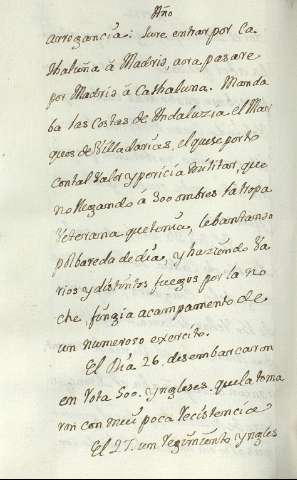 Año
arrogancia: Jure entrar por Ca-
thaluña â Madrid, aora pasare
por Madrid â Cathaluna. Manda
ba las Costas de Andaluzia el Mar
ques de Villadarias, el que se porto
con tal Valor y pericia Militar, que
no llegando â 300 ombres la tropa
Veterana que tenia, lebantando
polbareda de dia, y haziendo Va
rios y distintos fuegos por la no
che, fingia acampamento de
un numeroso exercito.
El Dia 26. desembarcaron
en Rota 500. yngleses, que la toma
ron con mui poca Recistencia
El 27. un Regimiento yngles